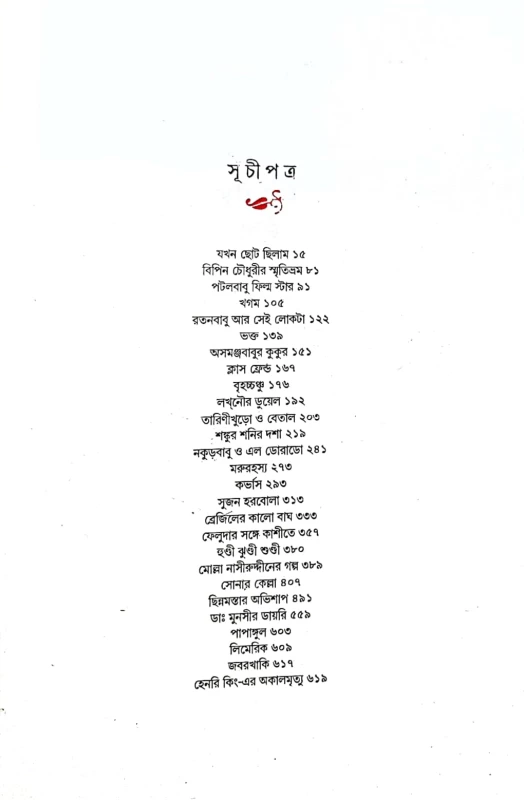 সূচীপত্র
যখন ছোট ছিলাম ১৫
বিপিন চৌধুরীর স্মৃতিভ্রম ৮১
পটলবাবু ফিল্ম স্টার ৯১
খগম ১০৫
রতনবাবু আর সেই লোকটা ১২২
ভক্ত ১৩৯
অসমঞ্জবাবুর কুকুর ১৫১
ক্লাস ফ্রেন্ড ১৬৭
বৃহচ্চঞ্চু ১৭৬
লখ্‌নৌর ডুয়েল ১৯২
তারিণীখুড়ো ও বেতাল ২০৩
শঙ্কুর শনির দশা ২১৯
নকুড়বাবু ও এল ডোরাডো ২৪১
মরুরহস্য ২৭৩
কর্ভাস ২৯৩
সুজন হরবোলা ৩১৩
ব্রেজিলের কালো বাঘ ৩৩৩
ফেলুদার সঙ্গে কাশীতে ৩৫৭
হুণ্ডী ঝুণ্ডী শুণ্ডী ৩৮০
মোল্লা নাসীরুদ্দীনের গল্প ৩৮৯
সোনার কেল্লা ৪০৭
ছিন্নমস্তার অভিশাপ ৪৯১
ডাঃ মুনসীর ডায়রি ৫৫৯
পাপাঙ্গুল ৬০৩
লিমেরিক ৬০৯
জবরখাকি ৬১৭
হেনরি কিং-এর অকালমৃত্যু ৬১৯